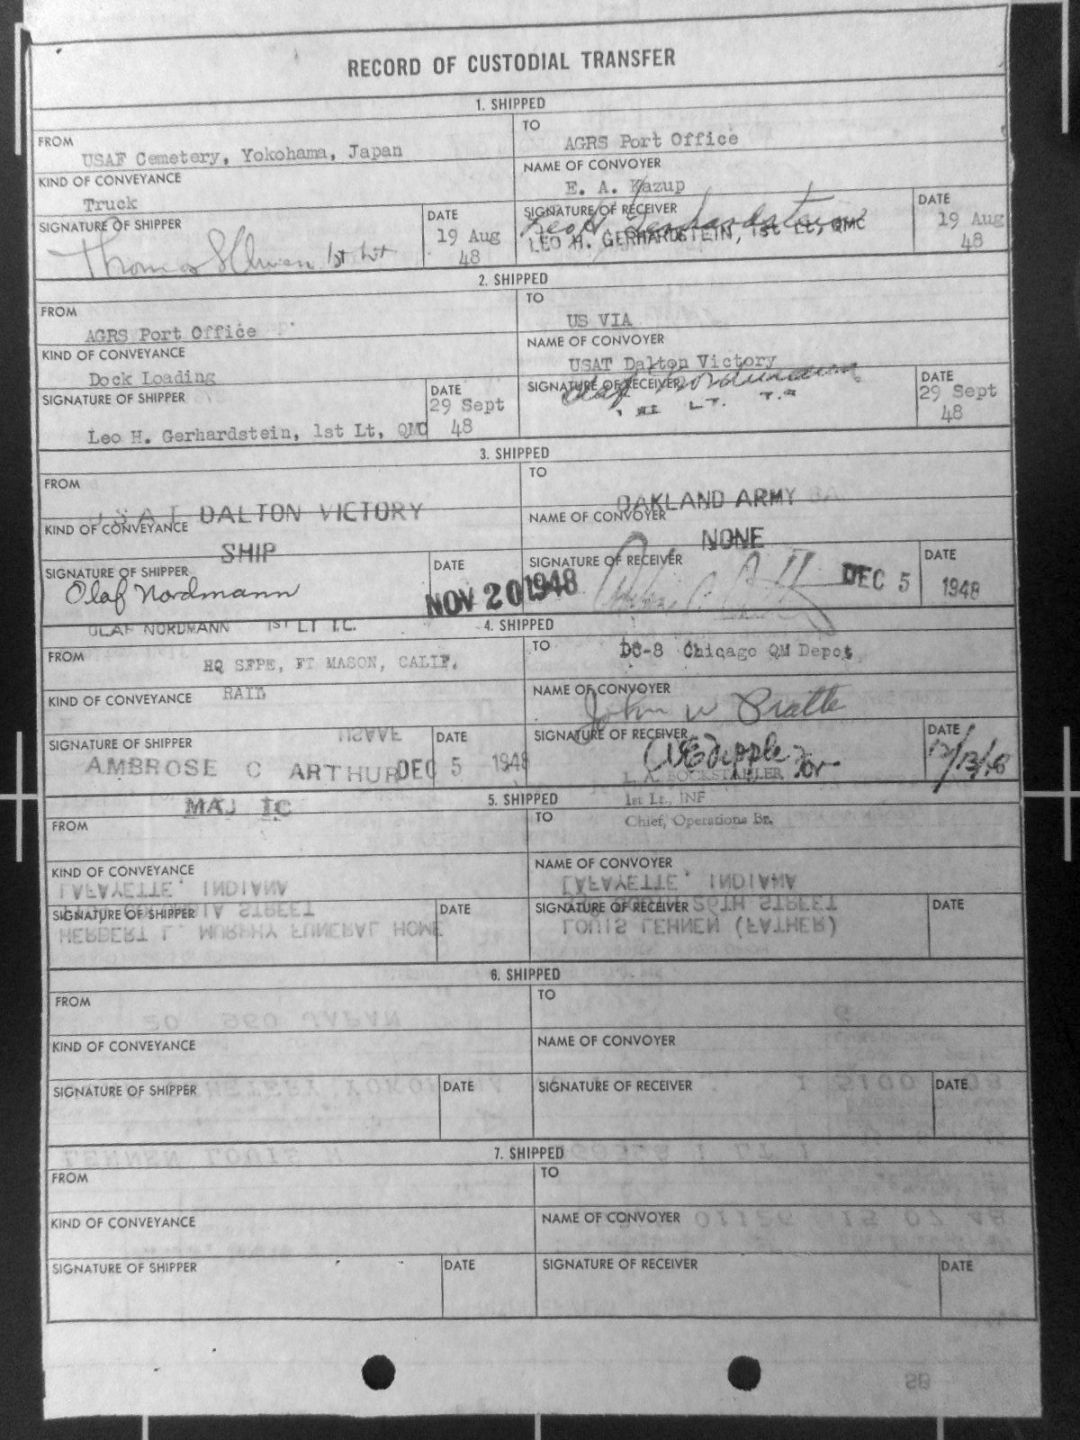 RECORD OF CUSTODIAL TRANSFER
1. SHIPPED
FROM
USAF Cemetery, Yokohama, Japan
TO
AGRS Port Office
KIND OF CONVEYANCE
Truck
NAME OF CONVOYER
E. A. Kazup
SIGNATURE OF SHIPPER
Thomas 1st Lt
DATE
19 Aug
48
SIGNATURE OF RECEIVER
Leo H. Gerhardstein
LEO H. GERHARDSTEIN, 1st Lt, QMC
DATE
19 Aug
48
2. SHIPPED
FROM
AGRS Port Office
TO
US VIA
KIND OF CONVEYANCE
Dock Loading
NAME OF CONVOYER
USAT Dalton Victory
SIGNATURE OF SHIPPER
Leo H. Gerhardstein, 1st Lt, QMC
DATE
29 Sept
48
SIGNATURE OF RECEIVER
Olaf Nordmann
LT. T.C.
DATE
29 Sept
48
3. SHIPPED
FROM
USAT DALTON VICTORY
TO
OAKLAND ARMY BA
KIND OF CONVEYANCE
SHIP
NAME OF CONVOYER
NONE
SIGNATURE OF SHIPPER
Olaf Nordmann
OLAF NORDMANN 1ST LT T.C.
DATE
NOV 20 1948
SIGNATURE OF RECEIVER
DATE
DEC 5 1948
4. SHIPPED
FROM
HQ SFPE, FT MASON, CALIF.
TO
DC-8 Chicago QM Depot
KIND OF CONVEYANCE
RAIL
NAME OF CONVOYER
John W Pratte
SIGNATURE OF SHIPPER
AMBROSE C ARTHUR
MAJ TC
DATE
DEC 5 1948
SIGNATURE OF RECEIVER
for
L. A. BOCKSTAHLER
1st Lt., INF
Chief, Operations Br.
DATE
12/13/48
5. SHIPPED
FROM
TO
KIND OF CONVEYANCE
LAFAYETTE, INDIANA
NAME OF CONVOYER
LAFAYETTE, INDIANA
SIGNATURE OF SHIPPER
COLUMBIA STREET
HERBERT L. MURPHY FUNERAL HOME
DATE
SIGNATURE OF RECEIVER
26TH STREET
LOUIS LEHNEN (FATHER)
DATE
6. SHIPPED
FROM
TO
20 960 JAPAN
KIND OF CONVEYANCE
NAME OF CONVOYER
SIGNATURE OF SHIPPER
DATE
SIGNATURE OF RECEIVER
DATE
7. SHIPPED
LEHNEN LOUIS H
FROM
TO
KIND OF CONVEYANCE
NAME OF CONVOYER
01126 15 07 48
SIGNATURE OF SHIPPER
DATE
SIGNATURE OF RECEIVER
DATE